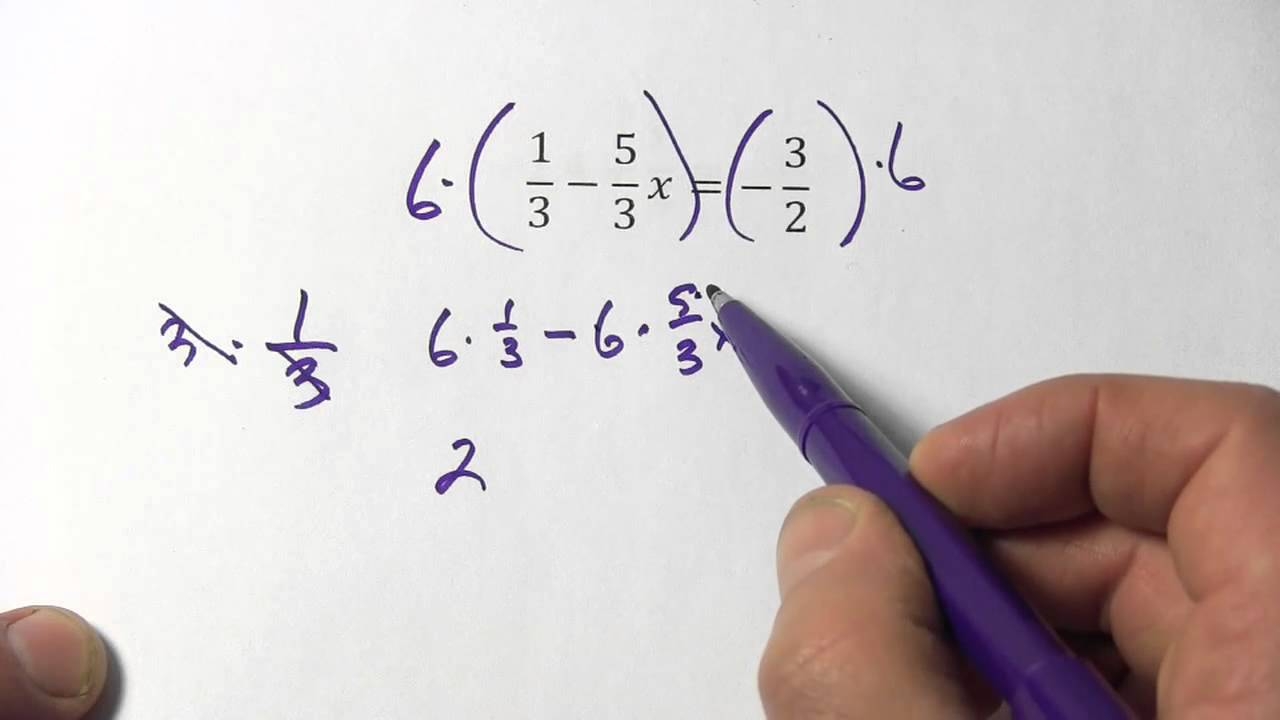 6 · ( 1/3 − 5/3 x ) = ( − 3/2 ) · 6
3 · 1/3
6 · 1/3 − 6 · 5/3 x
2